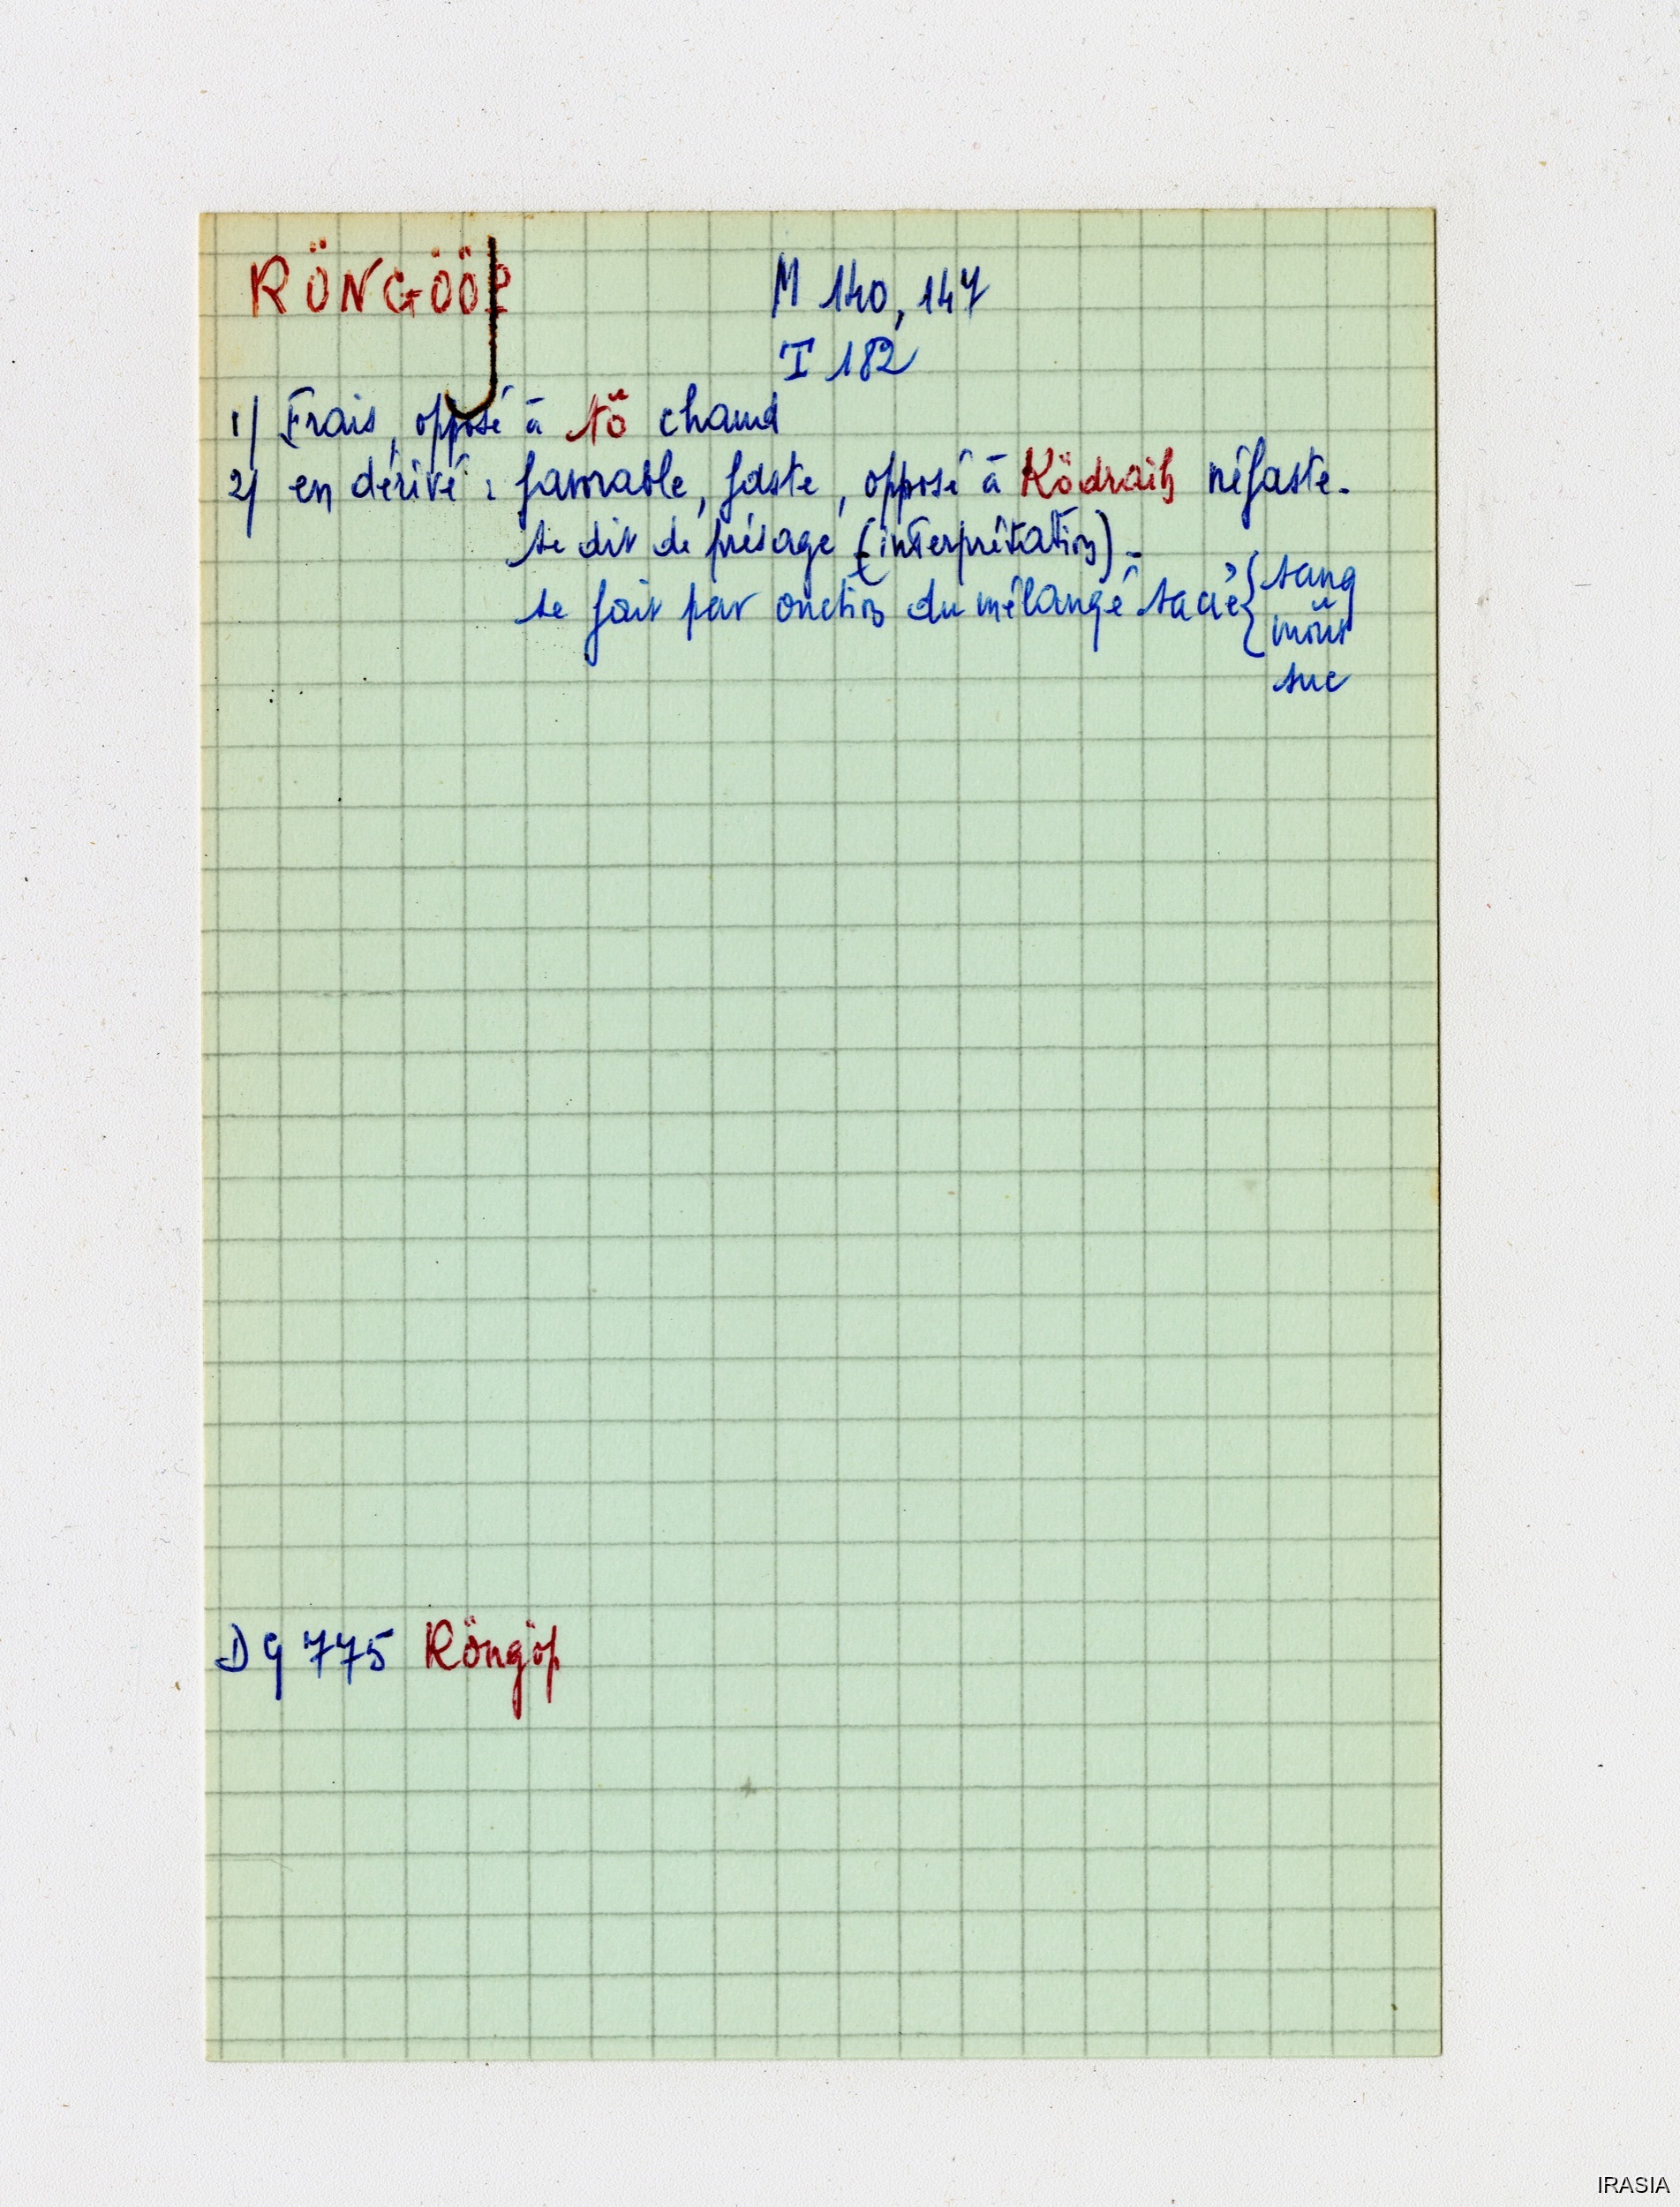 RÖNGÖÖP
M 140, 147
I 182
1) Frais, opposé à tö chaud
2) en dérivé : favorable, faste, opposé à Ködraih néfaste.
se dit de présage (interprétation).
se fait par onction du mélange sacré { sang
moût
suc
D9 775 Röngöp
IRASIA